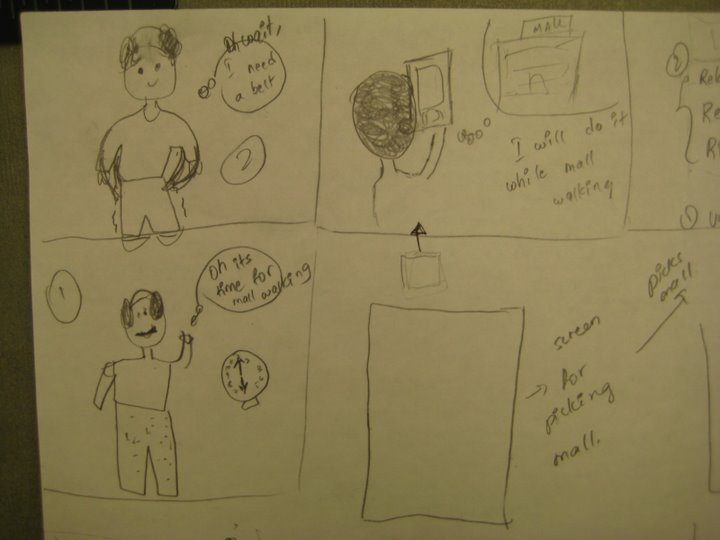 Oh wait,
I need
a belt
2
MALL
I will do it
while mall
walking
2
Rel
Re
Ri
1
1
Oh its
time for
mall walking
picks
mall
screen
→ for
picking
mall.